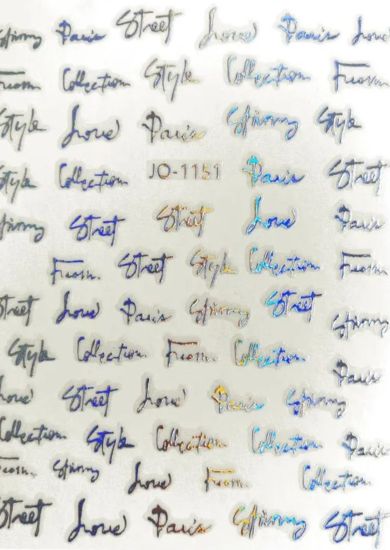 Spiring Paris Street Love Paris Love
From Collection Style Collection From
Style Love Paris Style
Style Collection JO-1151 Paris Street
Street Street Love Paris
From Street Style Collection From
Street Love Paris Street
Style Collection From Collection
Paris
Love Street Love Paris
Collection Style Collection Collection Paris
From Love From Collection
Street Love Paris Street